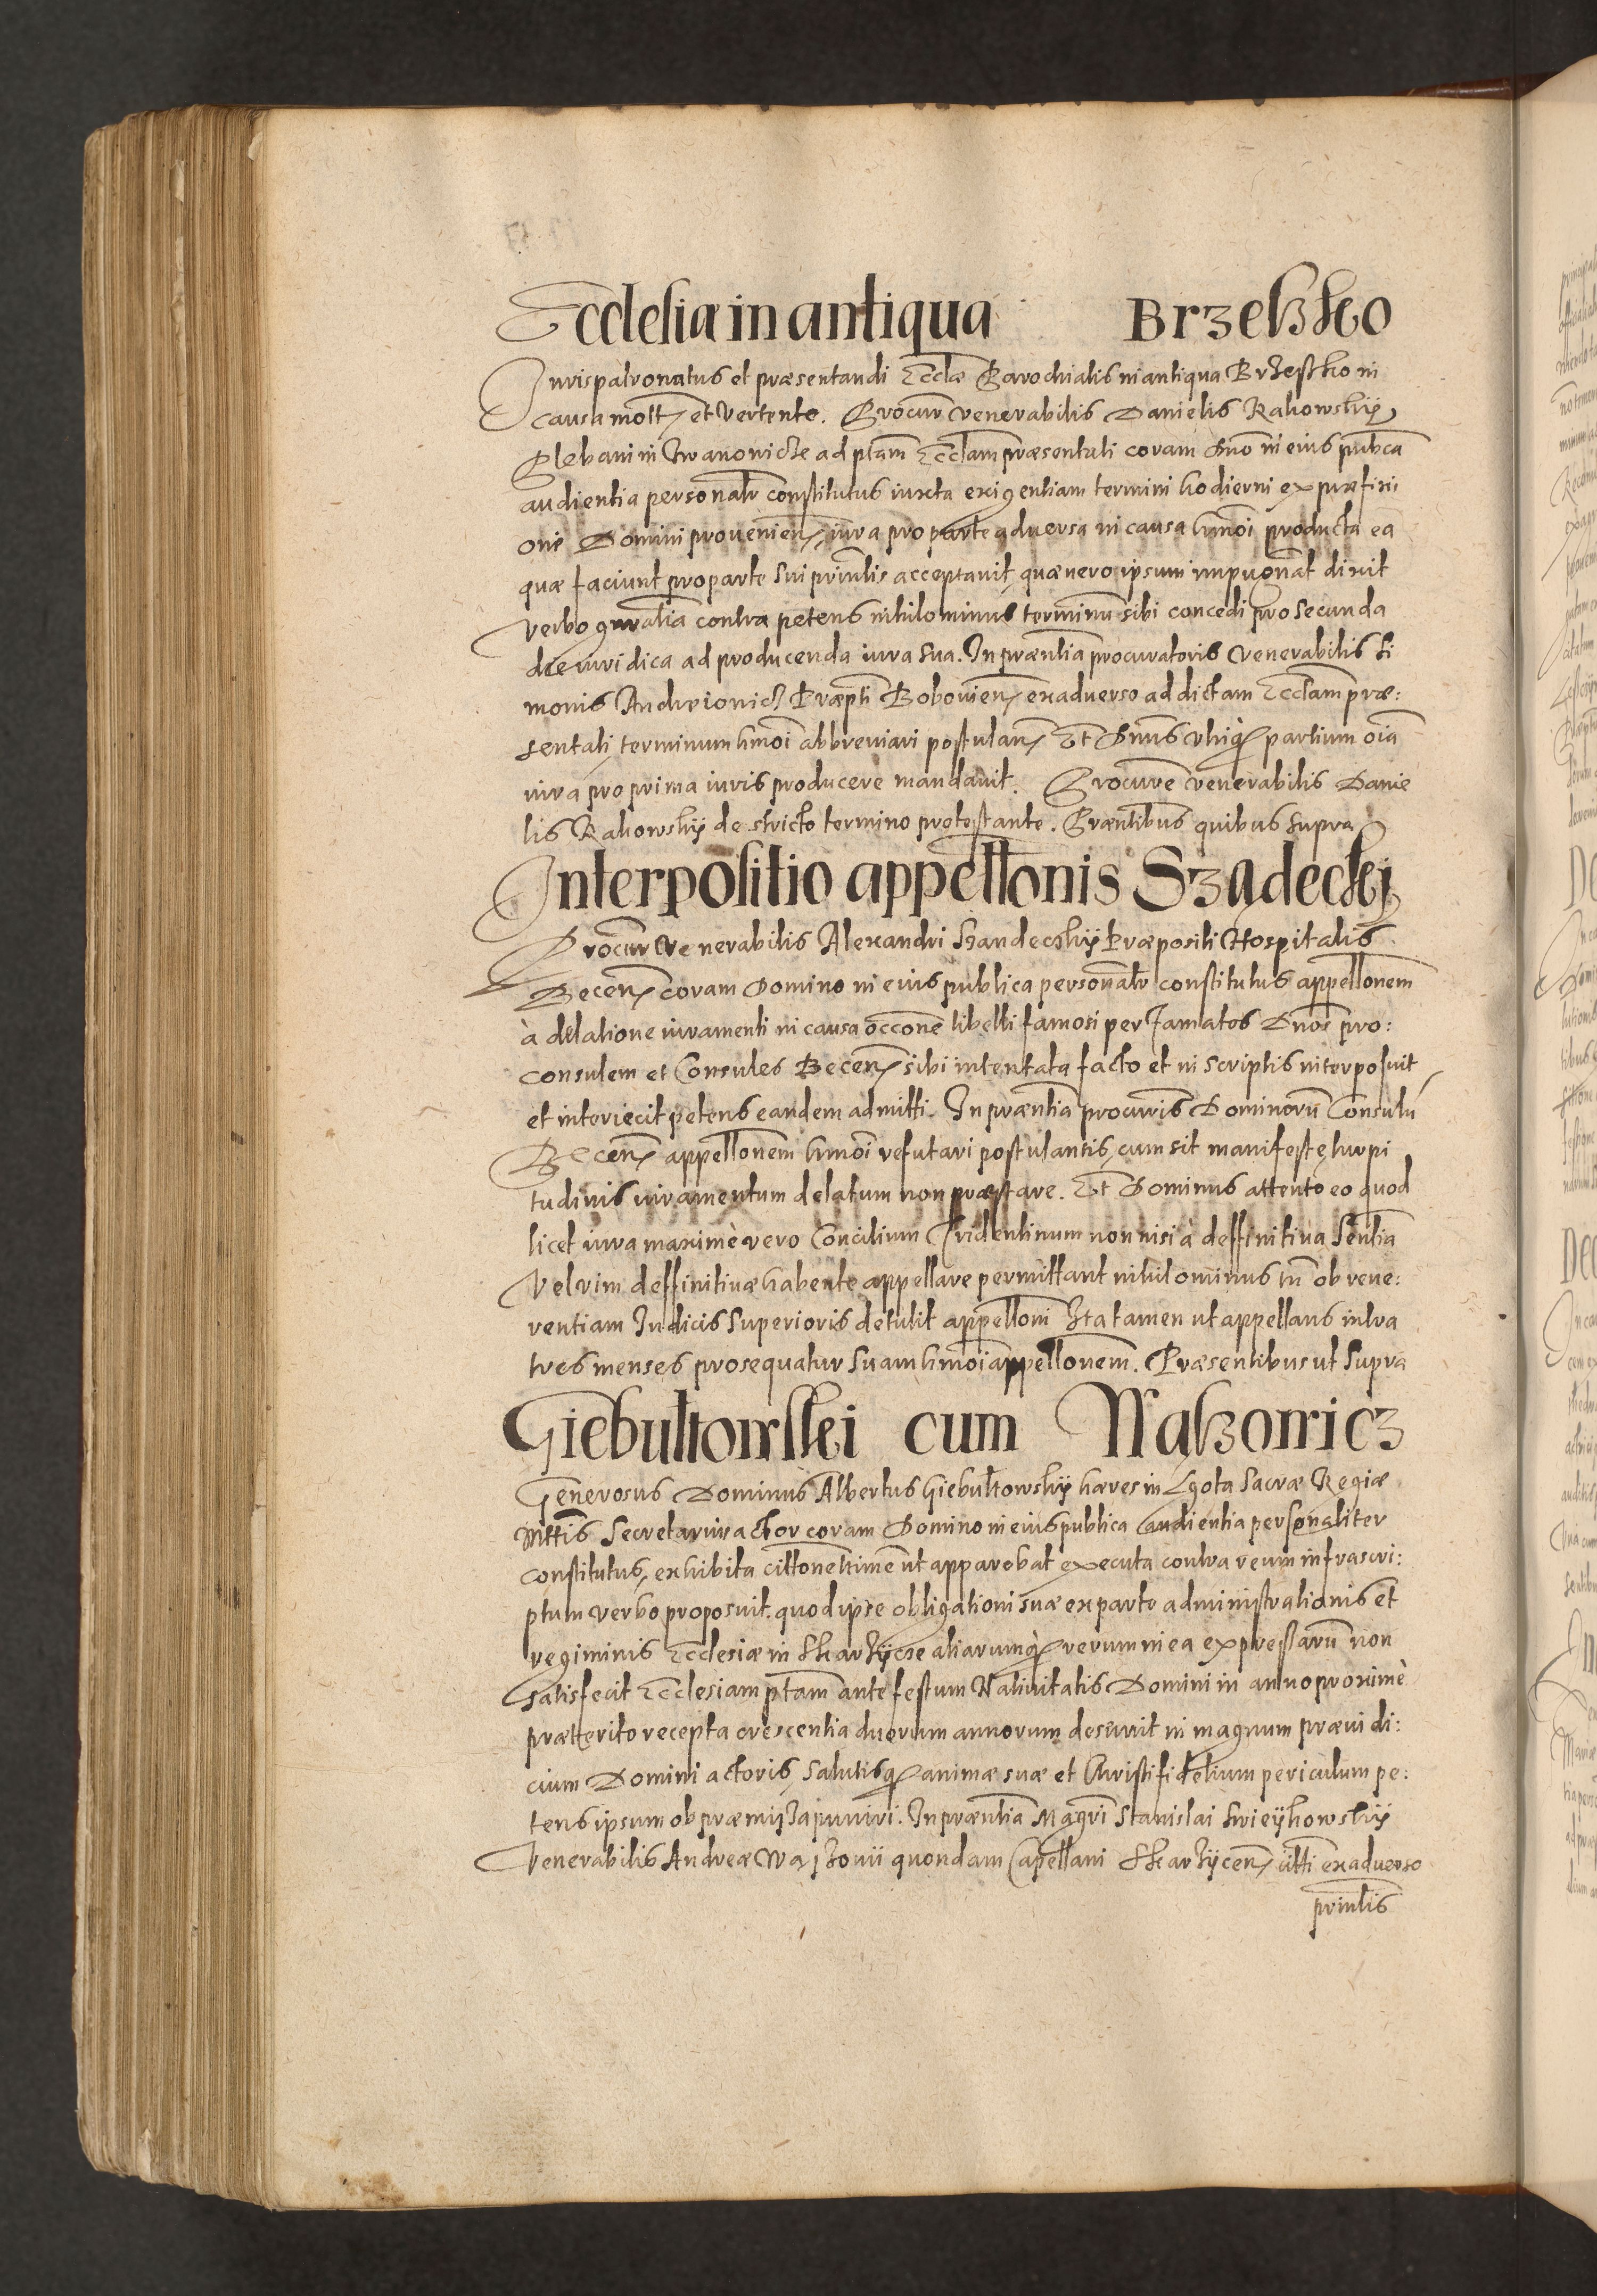 Ecclesia in antiqua Brzeszko
Iurispatronatus et præsentandi Ecclæ Parochialis in antiqua Brzesthko in
causa mott et vertente. Procur venerabilis Danielis Rakowskÿ
Plebani in Iwanowicze ad ptam Ecclam præsentati coram Dno in eius publca
audientia personalr constitutus iuxta exigentiam termini hodierni ex præfixi
one Domini prouenien, iura pro parte aduersa in causa hmoi producta ea
quæ faciunt pro parte sui prinlis acceptauit, quæ vero ipsum impugnat dixit
verbo gnralia contra petens nihilominus terminũ sibi concedi pro secunda
die iuridica ad producenda iura sua. In præntia procuratoris venerabilis Si
monis Andreiowicz Præpti Bobouien exaduerso ad dictam Ecclam præ:
sentati, terminum hmoi abbreuiari postulan Et Dnus vtriq partium oia
iura pro prima iuris producere mandauit. Procure venerabilis Danie
lis Rakowskÿ de stricto termino protestante. Præntibus quibus supra
Interpositio appellonis Szadeckej
Procur Venerabilis Alexandri Szandeczkÿ Præpositi Hospitalis
Becen coram Domino in eius publica personalr constitutus appellonem
à delatione iuramenti in causa occone libelli famosi per famatos Dnos pro:
consulem et Consules Becen sibi intentata facto et in scriptis interposuit
et interiecit petens eandem admitti. In præntia procuris Dominorũ Consulũ
Becen appellonem hmoi refutari postulantis, cum sit manifestę turpi
tudinis iuramentum delatum non præstare. Et Dominus attento eo quod
licet iura maximè vero Concilium Tridentinum non nisi à deffinitiua Sentia
vel vim deffinitiuæ habente appellare permittant nihilominus tn ob reue:
rentiam Iudicis Superioris detulit appelloni Ita tamen ut appellans intra
tres menses prosequatur suam hmoi appellonem. Præsentibus ut supra
Giebultowskei cum Waszowicz
Generosus Dominus Albertus Giebultowskÿ hæres in Lgota Sacræ Regiæ
Mttis Secretarius actor coram Domino in eius publica audientia personaliter
constitutus, exhibita cittone ltime ut apparebat executa contra reum infrascri:
ptum verbo proposuit quod ipse obligationi suæ ex parte administrationis et
regiminis Ecclesiæ in Skarzÿcze aliarumq rerum in ea expressarũ non
satisfecit Ecclesiam ptam ante festum Natiuitatis Domini in anno proximè
præterito recepta crescentia duorum annorum deseruit in magnum præiudi:
cium Domini actoris, salutisq animæ suæ et Christifidelium periculum pe:
tens ipsum ob præmissa puniri. In præntia Magri Stanislai
Venerabilis Andreæ quondam Capellani Skarzÿcen citti exaduerso
prinlis